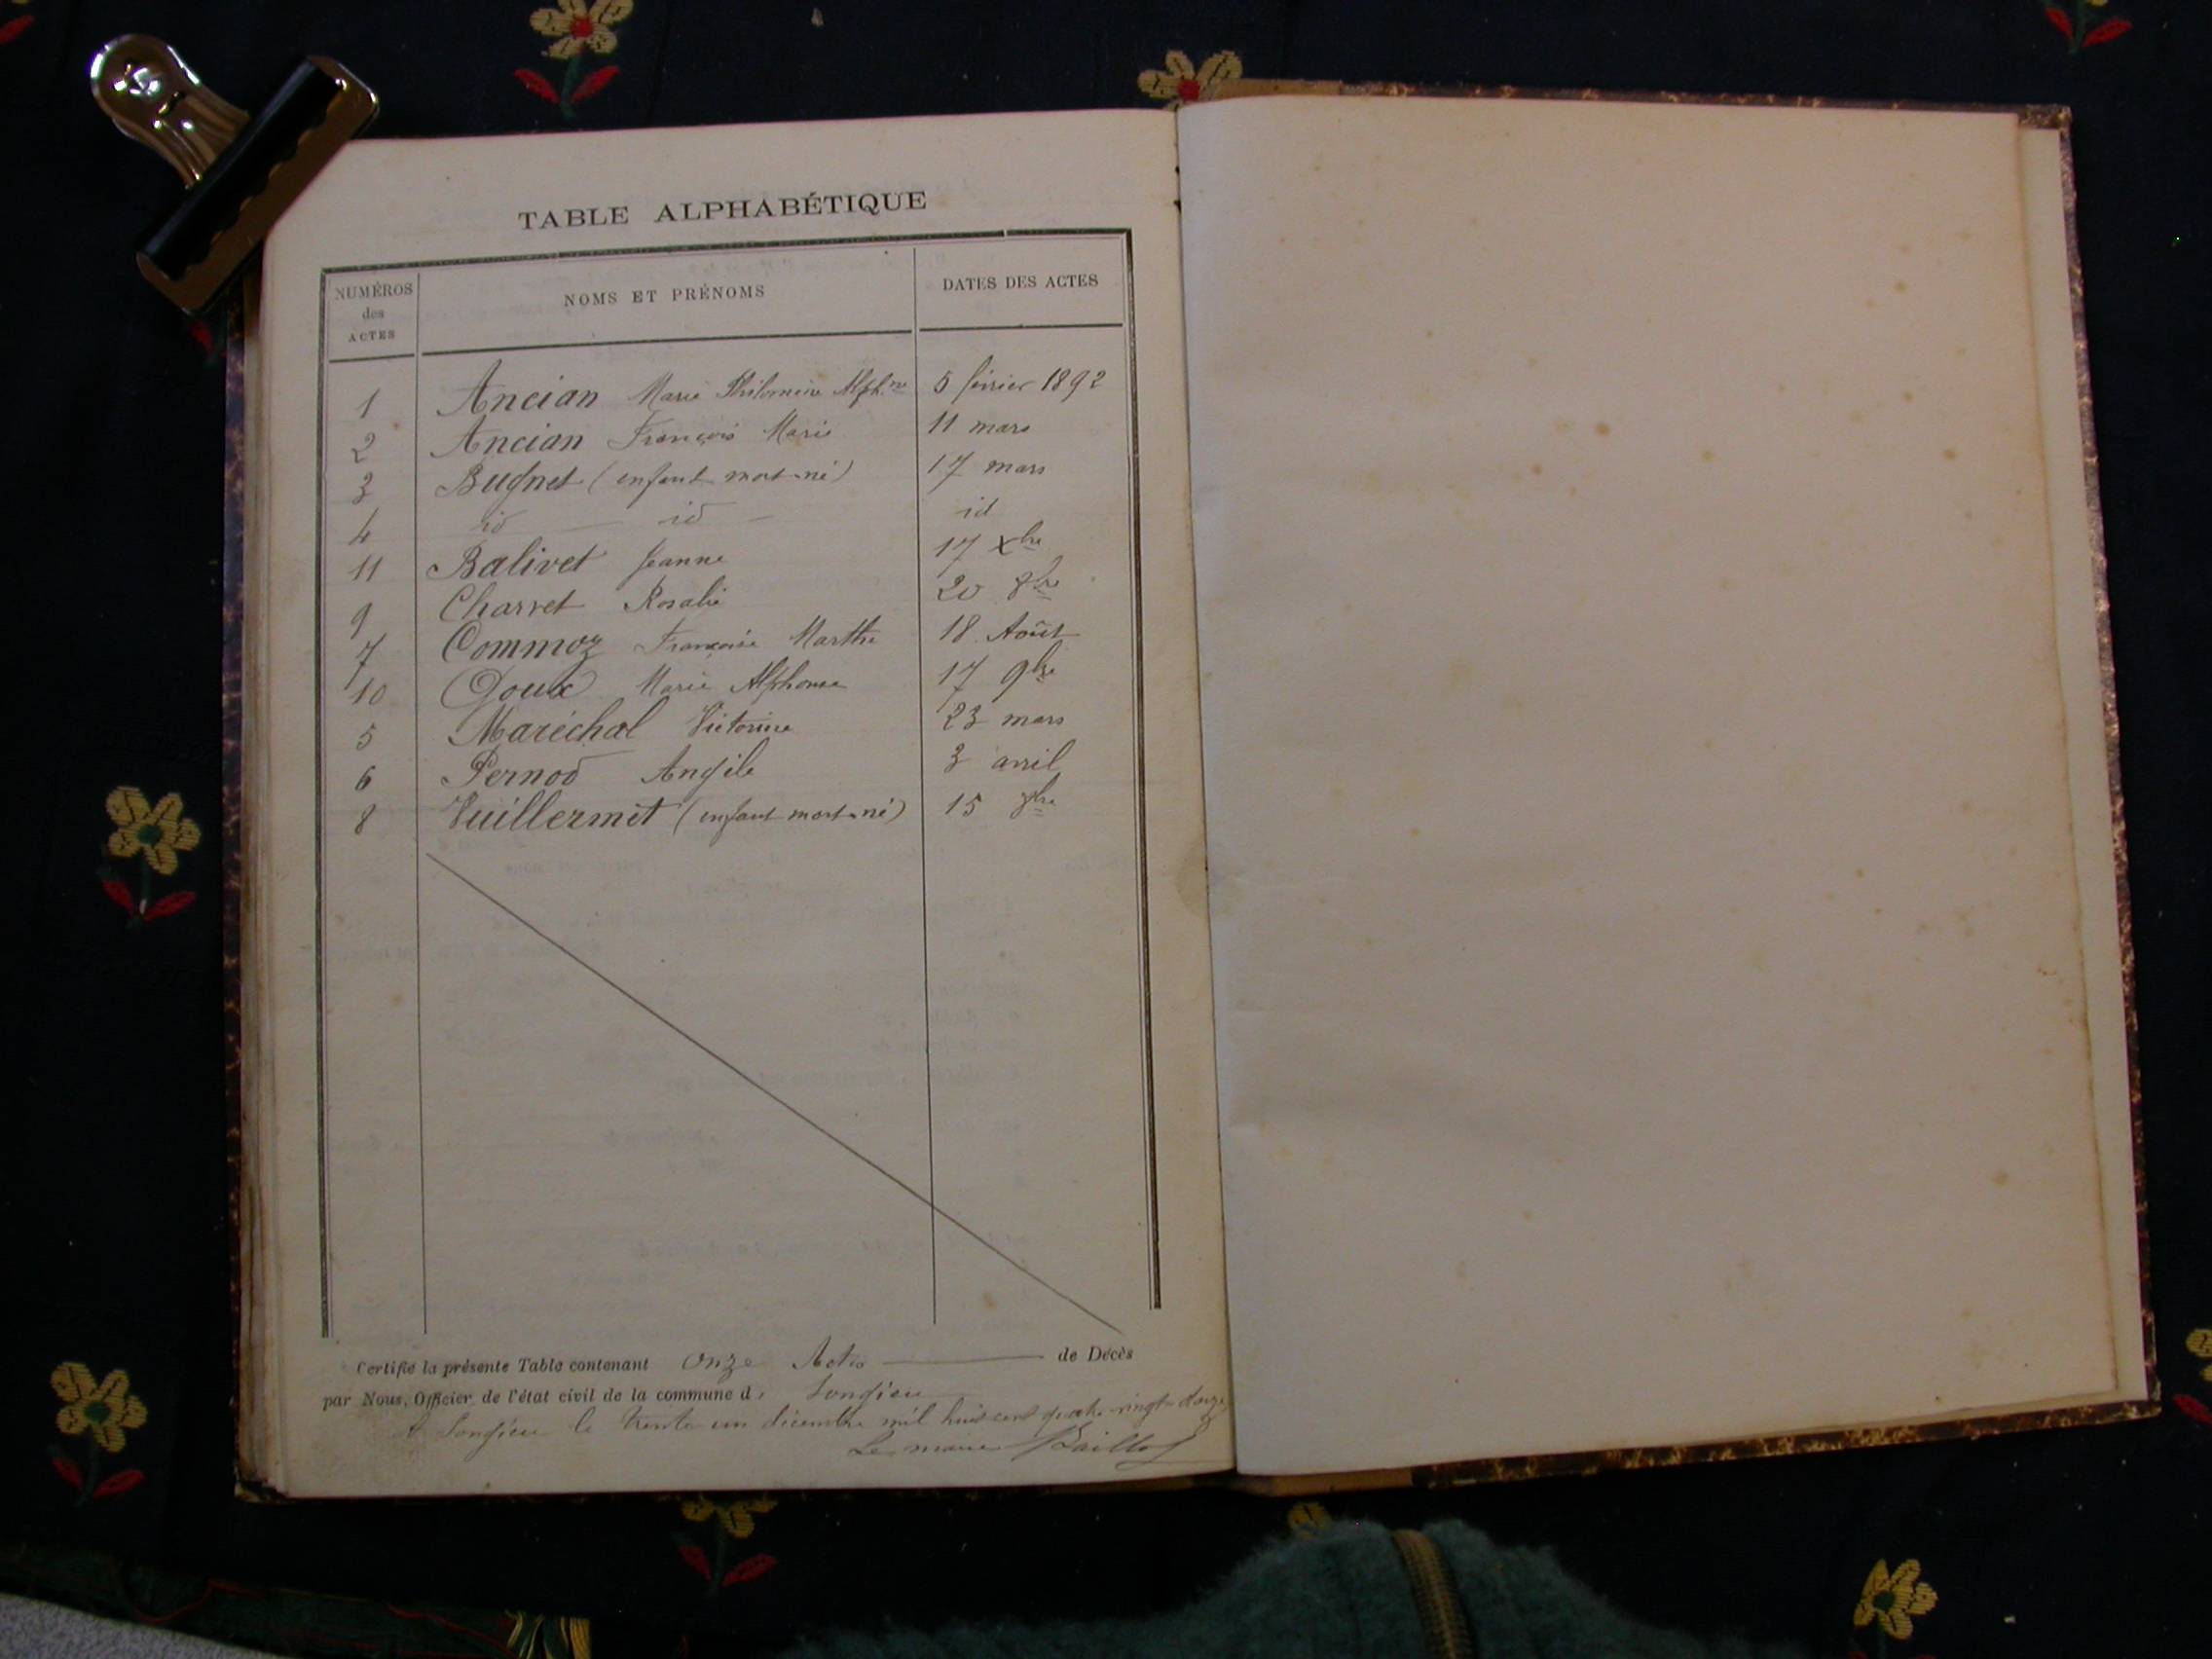 TABLE ALPHABÉTIQUE
NUMÉROS des ACTES NOMS ET PRÉNOMS DATES DES ACTES
1 Ancian Marie Philomène Alph.ne 5 février 1892
2 Ancian François Marie 11 mars
3 Bugnet (enfant mort-né) 17 mars
4 id — id — id
11 Balivet Jeanne 17 Xbre
9 Charvet Rosalie 20 8bre
7 Commoz Françoise Marthe 18 Août
10 Doux Marie Alphonse 17 9bre
5 Maréchal Victorine 23 mars
6 Pernod Angèle 3 avril
8 Vuillermet (enfant mort-né) 15 8bre
Certifié la présente Table contenant onze Actes — de Décès
par Nous, Officier de l'état civil de la commune d. Songieu
A Songieu le trente un décembre mil huit cent quatre-vingt-douze
Le maire Baillod